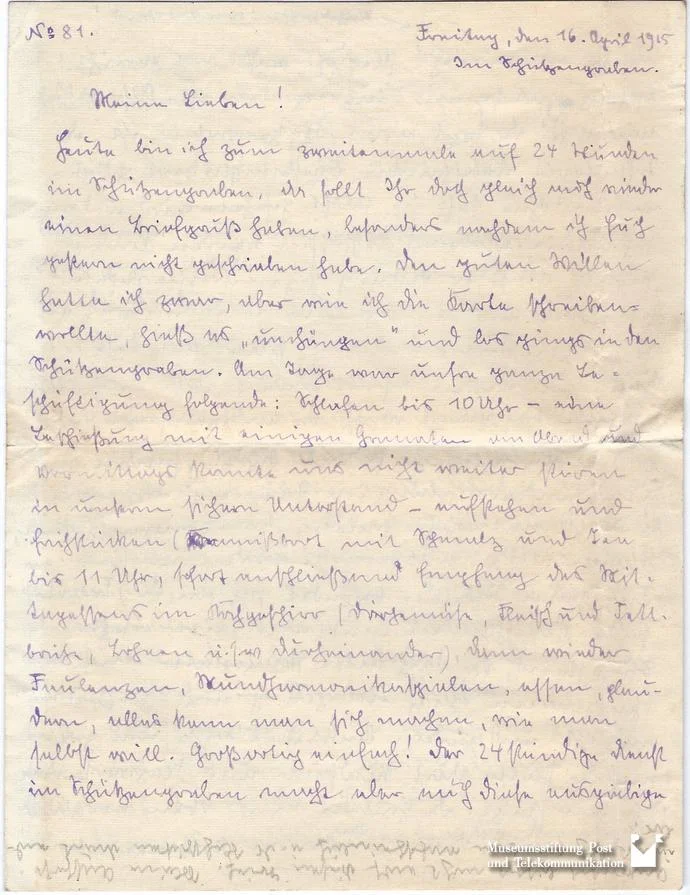 No 81.
Freitag, den 16. April 1915
Im Schützengraben.
Meine Lieben!
Heute bin ich zum zweitenmale auf 24 Stunden
im Schützengraben, da sollt Ihr doch gleich auch wieder
einen Briefgruß haben, besonders nachdem ich Euch
gestern nicht geschrieben habe. Den guten Willen
hatte ich zwar, aber wie ich die Karte schreiben-
wollte, hieß es „umhängen“ und los gings in den
Schützengraben. Am Tage war unsre ganze Be-
schäftigung folgende: Schlafen bis 10 Uhr – eine
Beschießung mit einigen Granaten am Abend und
Vormittags konnte uns nicht weiter stören
in unserm sichern Unterstand – aufstehen und
frühstücken (Kommißbrot mit Schmalz und Tee
bis 11 Uhr, sofort anschließend Empfang des Mit-
tagessens im Kochgeschirr (Dörrgemüse, Fleisch und Fett-
brühe, Bohnen u.s.w durcheinander), dann wieder
Faulenzen, Mundharmonikaspielen, essen, plau-
dern, alles kann man sich machen, wie man
selbst will. Großartig einfach! Der 24 stündige Dienst
im Schützengraben macht aber auch diese ausgiebige
Museumsstiftung Post
und Telekommunikation